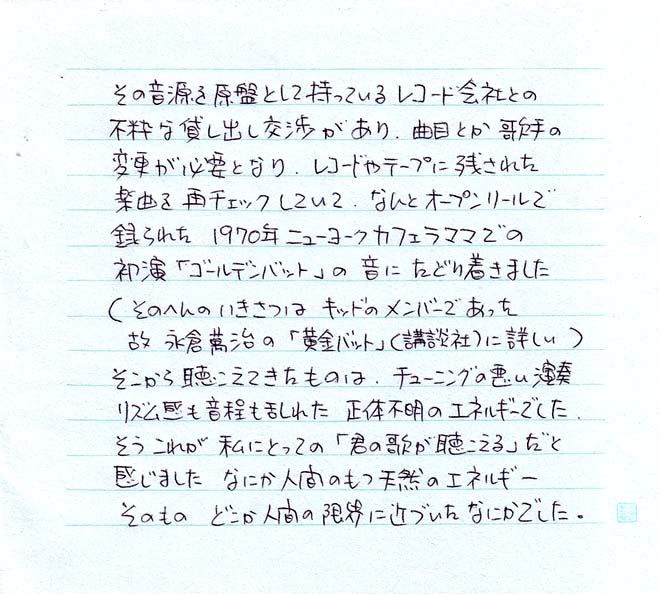 その音源を原盤として持っているレコード会社との
不粋な貸し出し交渉があり、曲目とか歌手の
変更が必要となり、レコードやテープに残された
楽曲を再チェックしていて、なんとオープンリールで
録られた 1970年ニューヨークカフェラママでの
初演「ゴールデンバット」の音にたどり着きました
(そのへんのいきさつは キッドのメンバーであった
故 永倉萬治の「黄金バット」(講談社)に詳しい)
そこから聴こえてきたものは、チューニングの悪い演奏
リズム感も音程も乱れた 正体不明のエネルギーでした.
そうこれが 私にとっての「君の歌が聴こえる」だと
感じました なにか人間のもつ天然のエネルギー
そのもの どこか人間の限界に近づいたなにかでした。